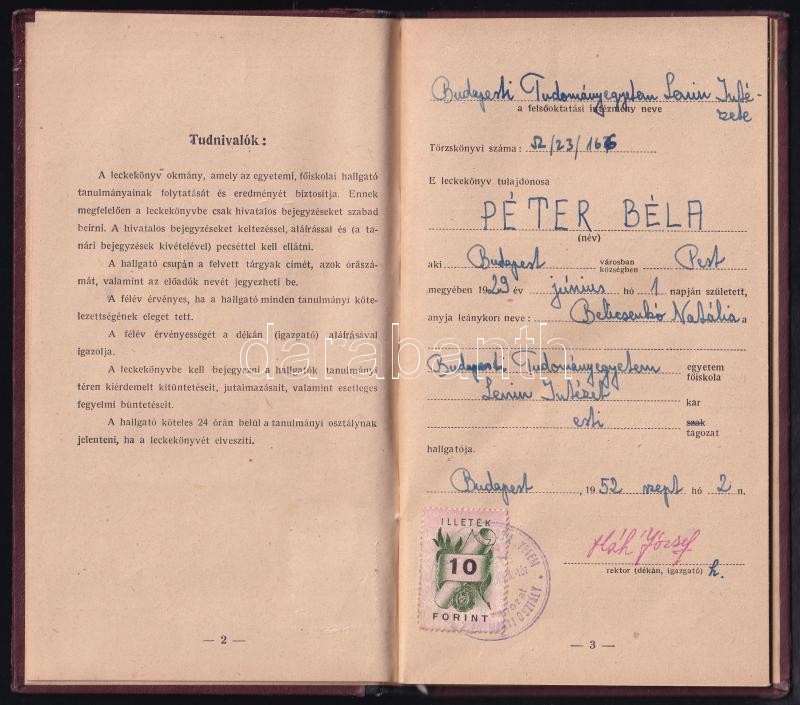 Tudnivalók:
A leckekönyv okmány, amely az egyetemi, főiskolai hallgató
tanulmányainak folytatását és eredményét biztosítja. Ennek
megfelelően a leckekönyvbe csak hivatalos bejegyzéseket szabad
beírni. A hivatalos bejegyzéseket keltezéssel, aláírással és (a ta-
nári bejegyzések kivételével) pecséttel kell ellátni.
A hallgató csupán a felvett tárgyak címét, azok óraszá-
mát, valamint az előadók nevét jegyezheti be.
A félév érvényes, ha a hallgató minden tanulmányi köte-
lezettségének eleget tett.
A félév érvényességét a dékán (igazgató) aláírásával
igazolja.
A leckekönyvbe kell bejegyezni a hallgatók tanulmányi
téren kiérdemelt kitüntetéseit, jutalmazásait, valamint esetleges
fegyelmi büntetéseit.
A hallgató köteles 24 órán belül a tanulmányi osztálynak
jelenteni, ha a leckekönyvét elveszíti.
— 2 —
Budapesti Tudományegyetem Lenin Inté-
zete
a felsőoktatási intézmény neve
Törzskönyvi száma: 52/23/166
E leckekönyv tulajdonosa
PÉTER BÉLA
(név)
aki Budapest városban községben Pest
megyében 1929 év június hó 1 napján született,
anyja leánykori neve: Belicsenkó Natália a
Budapesti Tudományegyetem egyetem
főiskola
Lenin Intézet kar
esti szak
tagozat
hallgatója.
Budapest, 1952 szept hó 2 n.
ILLETÉK
10
FORINT
József
rektor (dékán, igazgató) h.
— 3 —
darabanth